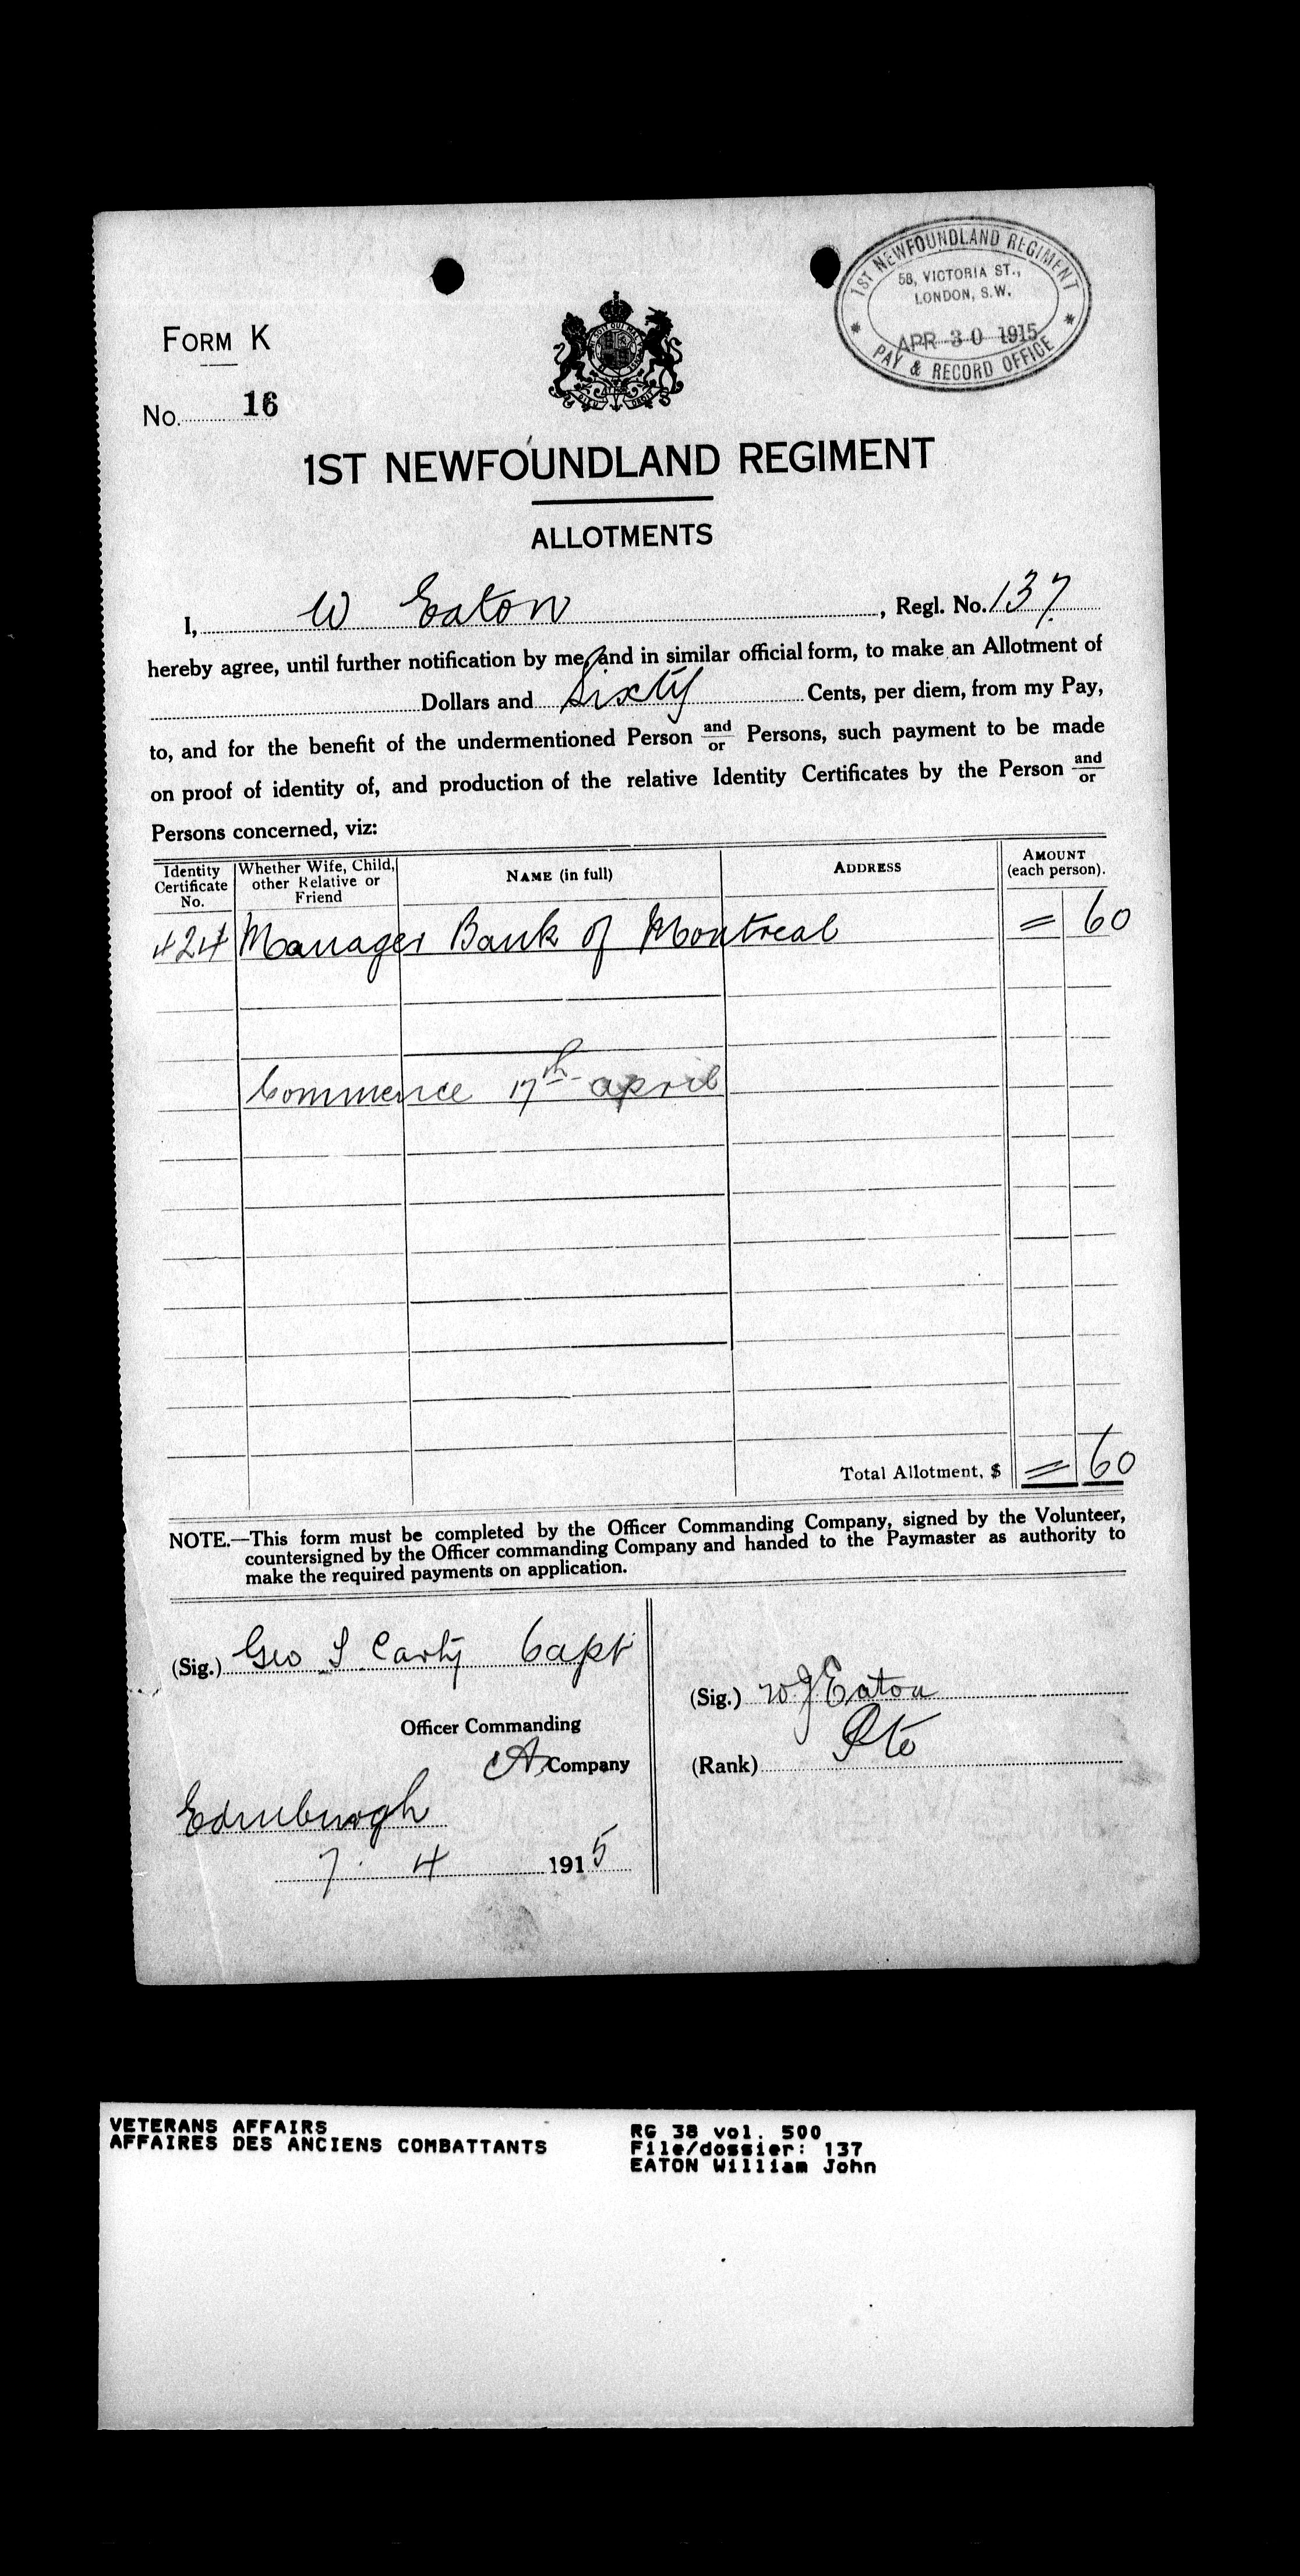 1ST NEWFOUNDLAND REGIMENT
58, VICTORIA ST.,
LONDON, S.W.
APR 30 1915
PAY & RECORD OFFICE
FORM K
No. 16
1ST NEWFOUNDLAND REGIMENT
ALLOTMENTS
I, W Eaton, Regl. No. 137
hereby agree, until further notification by me, and in similar official form, to make an Allotment of
Dollars and Sixty Cents, per diem, from my Pay,
to, and for the benefit of the undermentioned Person and/or Persons, such payment to be made
on proof of identity of, and production of the relative Identity Certificates by the Person and/or
Persons concerned, viz:
Identity Certificate No. Whether Wife, Child, other Relative or Friend NAME (in full) ADDRESS AMOUNT (each person).
424 Manager Bank of Montreal = 60
Commence 17th april
Total Allotment, $ = 60
NOTE.—This form must be completed by the Officer Commanding Company, signed by the Volunteer,
countersigned by the Officer commanding Company and handed to the Paymaster as authority to
make the required payments on application.
(Sig.) Geo S Carty Capt
Officer Commanding
A Company
Edinburgh
7. 4 1915
(Sig.) W J Eaton
(Rank) Pte
VETERANS AFFAIRS
AFFAIRES DES ANCIENS COMBATTANTS
RG 38 vol. 500
File/dossier: 137
EATON William John